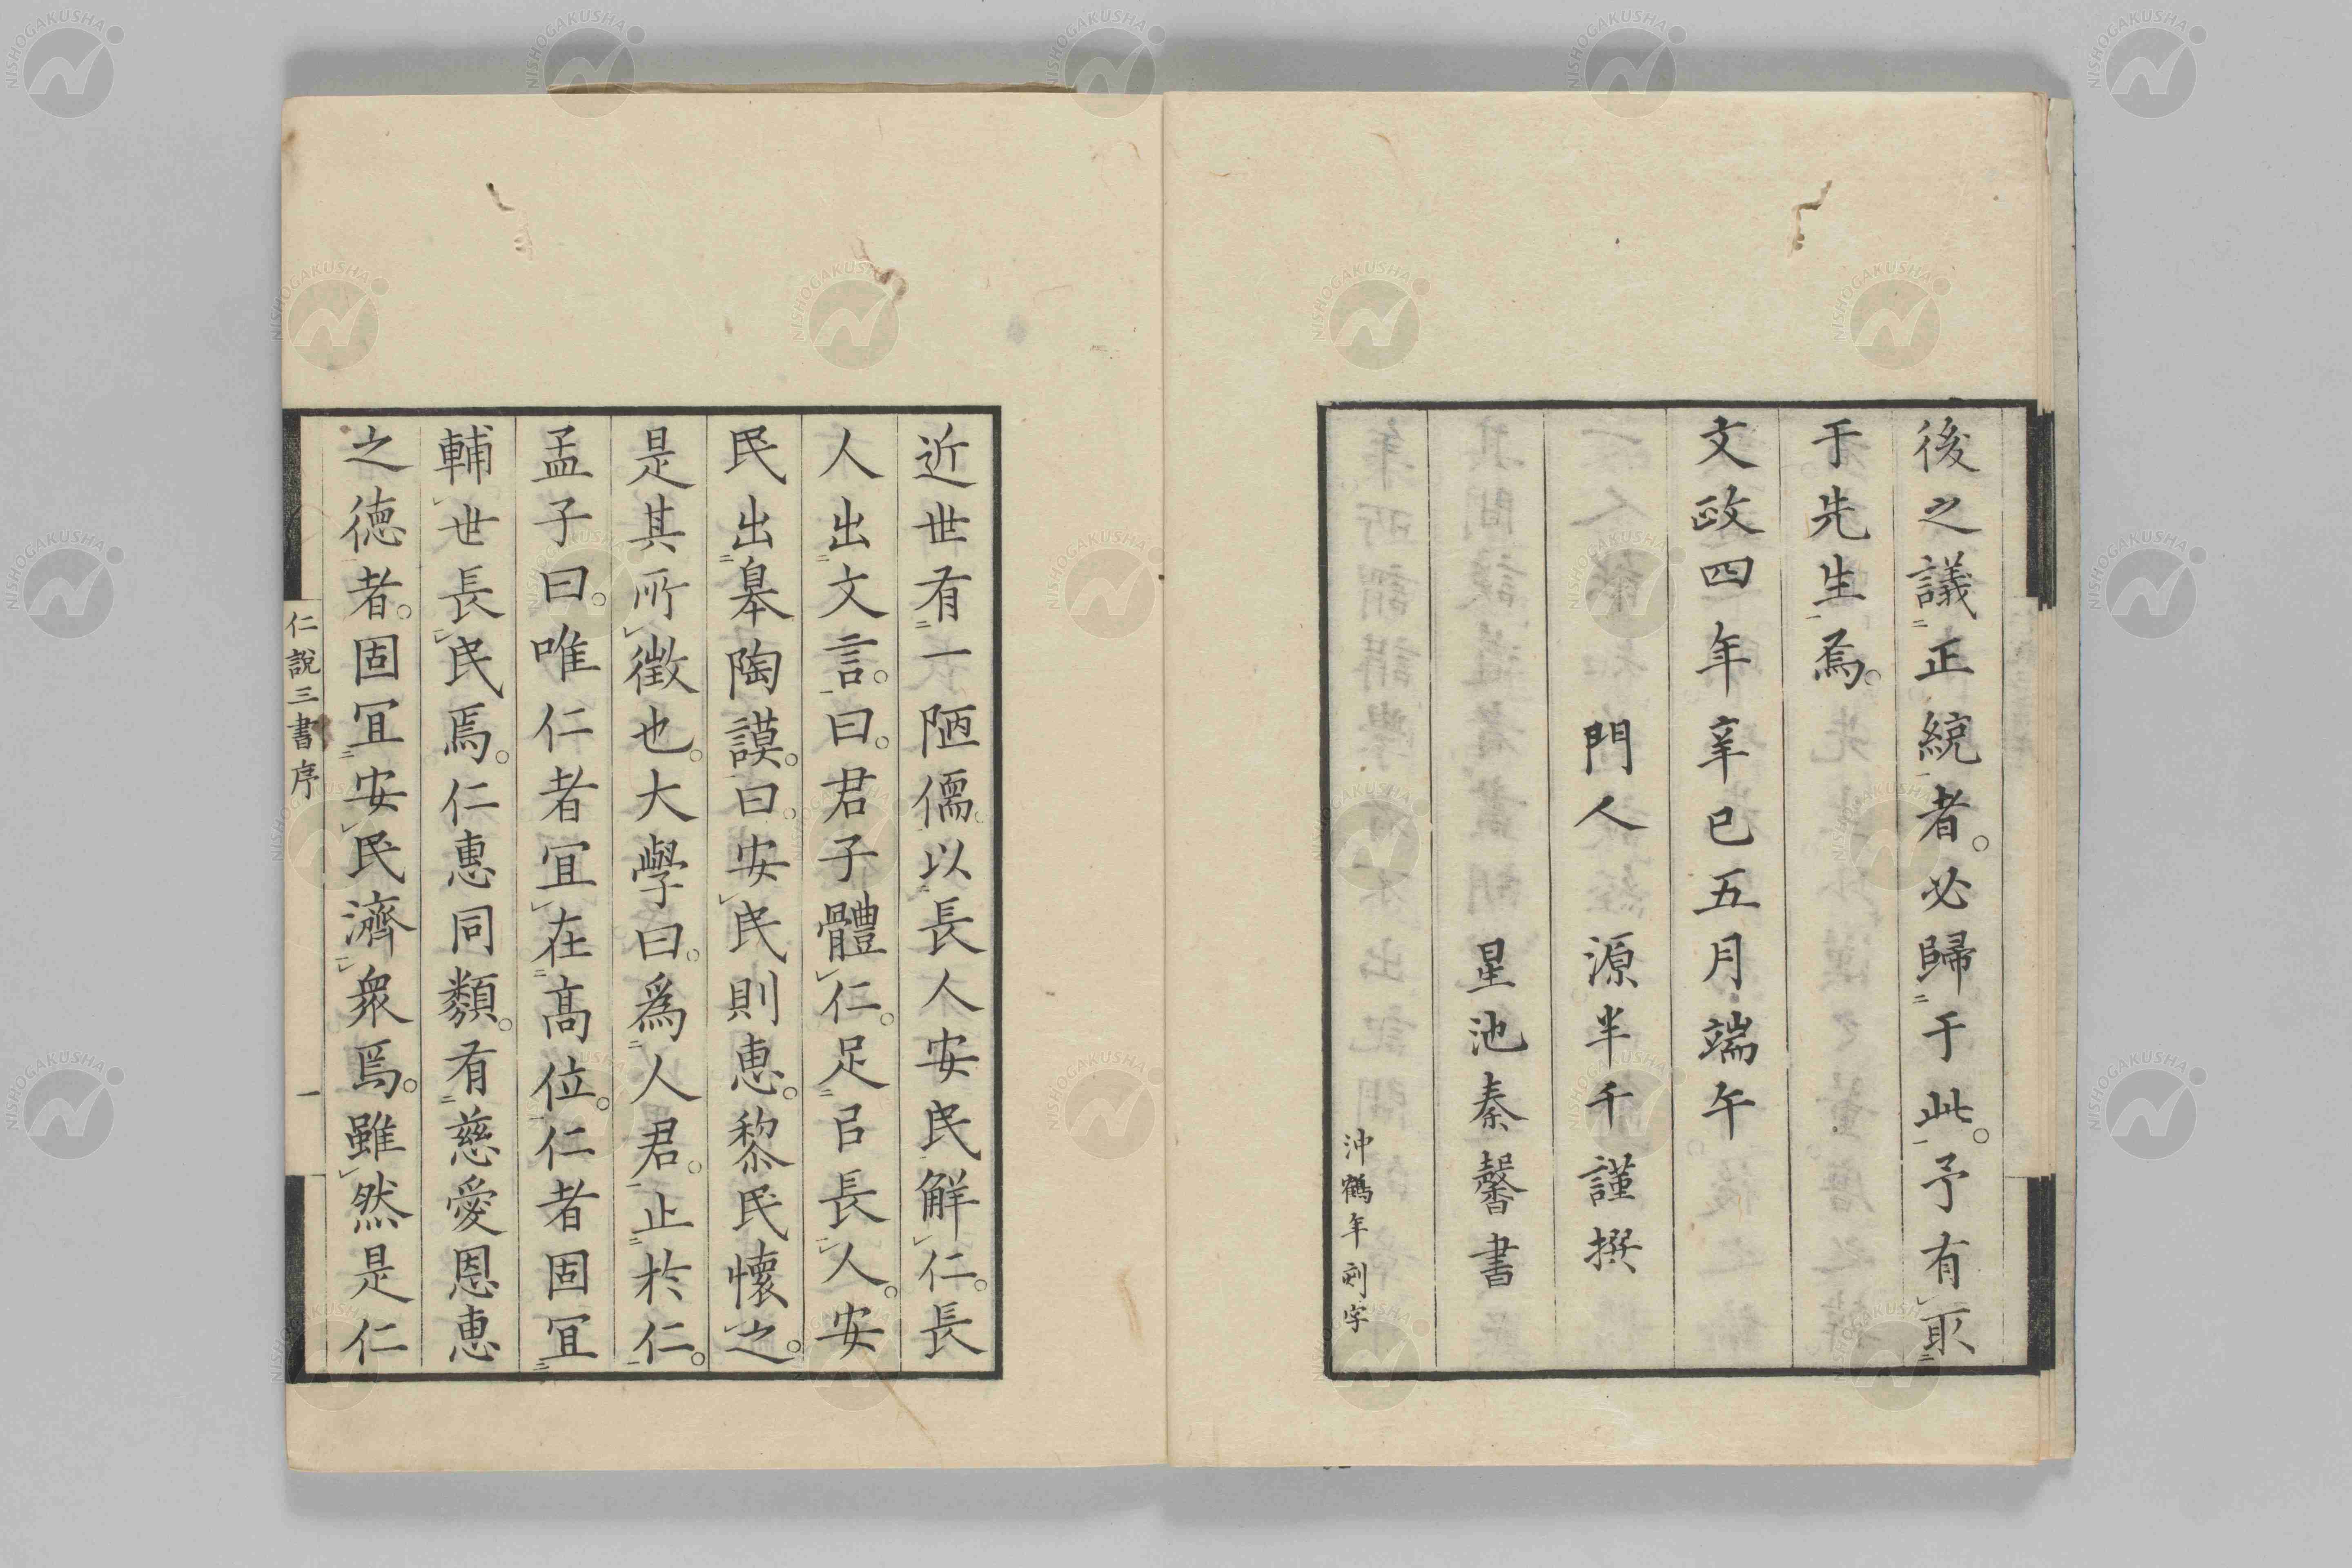 後之議正統者。必歸于此。予有取
于先生焉。
文政四年辛巳五月端午
門人 源半千謹撰
星池秦馨書
沖鶴年刻字
近世有一陋儒。以長人安民解仁。長
人出文言。曰。君子體仁。足㠯長人。安
民出皋陶謨。曰。安民則惠。黎民懷之。
是其所徵也。大學曰。爲人君。止於仁。
孟子曰。唯仁者宜在高位。仁者固宜
輔世長民焉。仁惠同類。有慈愛恩惠
之德者。固宜安民濟衆焉。雖然是仁
仁說三書序
一
NISHOGAKUSHA